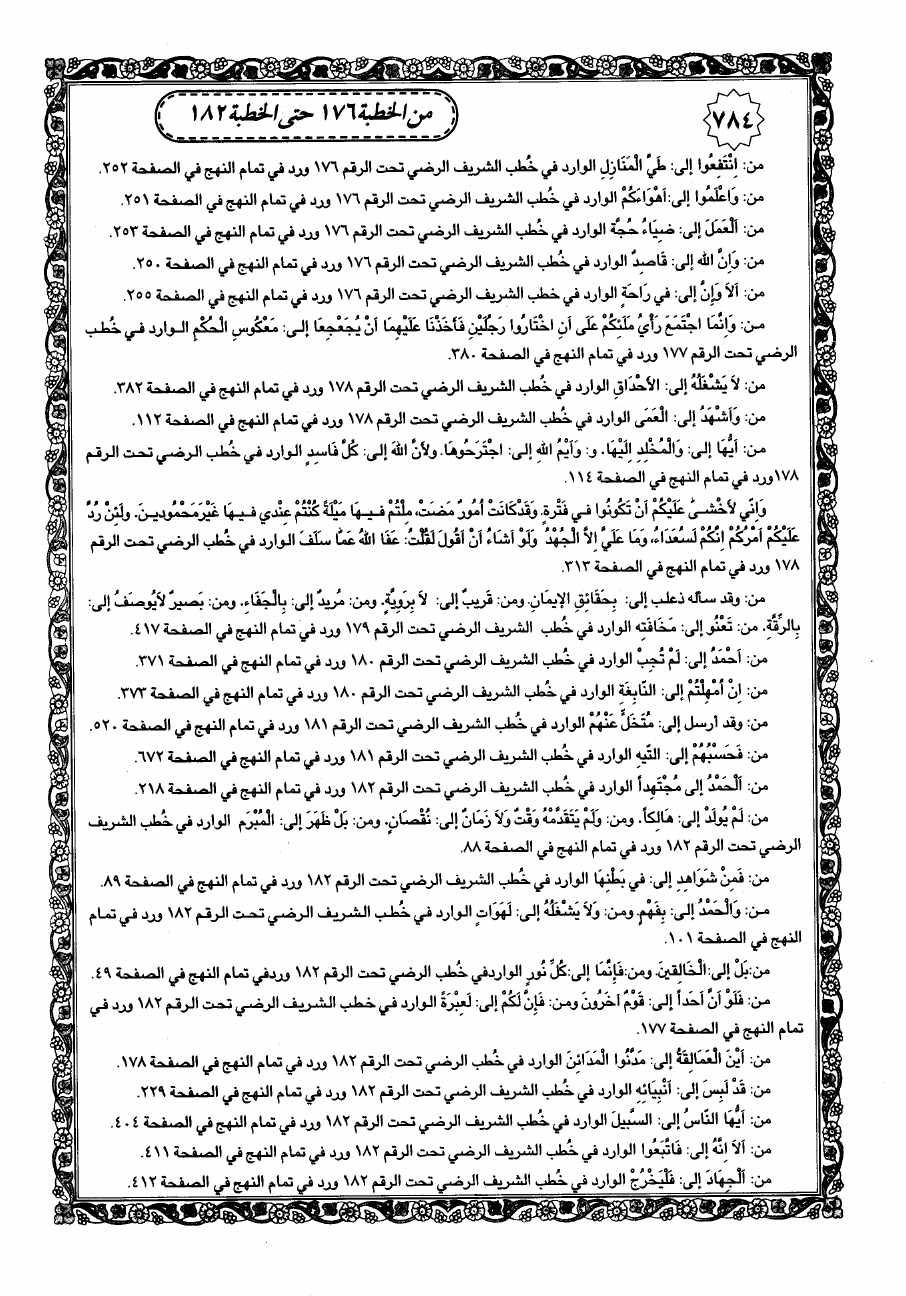 ٧٨٤
من الخطبة ١٧٦ حتى الخطبة ١٨٢
من: اِنْتَفِعُوا إلى: طَيَّ الْمَنَازِلِ الوارد في خُطب الشريف الرضي تحت الرقم ١٧٦ ورد في تمام النهج في الصفحة ٢٥٢.
من: وَاعْلَمُوا إلى:أَهْوَاءَكُمْ الوارد في خُطب الشريف الرضي تحت الرقم ١٧٦ ورد في تمام النهج في الصفحة ٢٥١.
من: اَلْعَمَلَ إلى: ضِيَاءُ حُجَّة الوارد في خُطب الشريف الرضي تحت الرقم ١٧٦ ورد في تمام النهج في الصفحة ٢٥٣.
من: وَاِنَّ الله إلى: قَاصِدٌ الوارد في خُطب الشريف الرضي تحت الرقم ١٧٦ ورد في تمام النهج في الصفحة ٢٥٠.
من: اَلاَ وَاِنَّ إلى: في رَاحَةٍ الوارد في خطب الشريف الرضي تحت الرقم ١٧٦ ورد في تمام النهج في الصفحة ٢٥٥.
من: وَاِنَّمَا اجْتَمَعَ رَأْيُ مَلَئِكُمْ عَلَى أَنِ اخْتَارُوا رَجُلَيْنِ فَأَخَذْنَا عَلَيْهِمَا أَنْ يُجَعْجِعَا إلى: مَعْكُوسِ الْحُكْمِ الوارد في خُطب
الرضي تحت الرقم ١٧٧ ورد في تمام النهج في الصفحة ٣٨٠.
من: لاَ يَشْغَلُهُ إلى: الأَحْدَاقِ الوارد في خُطب الشريف الرضي تحت الرقم ١٧٨ ورد في تمام النهج في الصفحة ٣٨٢.
من: وَاَشْهَدُ إلى: الْعَمَى الوارد في خُطب الشريف الرضي تحت الرقم ١٧٨ ورد في تمام النهج في الصفحة ١١٢.
من: اَيُّهَا إلى: وَالْمُخْلِدِ اِلَيْهَا. و: وَأَيْمُ اللهِ إلى: اجْتَرَحُوهَا. ولأَنَّ اللهَ إلى: كُلَّ فَاسِدٍ الوارد في خُطب الرضي تحت الرقم
١٧٨ورد في تمام النهج في الصفحة ١١٤.
وَاِنّي لأَخْشىٰ عَلَيْكُمْ أَنْ تَكُونُوا في فَتْرَةٍ. وَقَدْكَانَتْ أُمُورٌ مَضَتْ، مِلْتُمْ فيهَا مَيْلَةً كُنْتُمْ عِنْدي فيهَا غَيْرَمَحْمُودينَ. وَلَئِنْ رُدَّ
عَلَيْكُمْ أَمْرُكُمْ اِنَّكُمْ لَسُعَدَاءُ، وَمَا عَلَيَّ اِلاَّ الْجُهْدُ وَلَوْ أَشَاءُ أَنْ أَقُولَ لَقُلْتُ: عَفَا اللهُ عَمَّا سَلَفَ الوارد في خُطب الرضي تحت الرقم
١٧٨ ورد في تمام النهج في الصفحة ٣١٣.
من: وقد سأله ذعلب إلى: بِحَقَائِقِ الإيمَانِ. ومن: قَريبٌ إلى: لاَ بِرَوِيَّةٍ. ومن: مُريدٌ إلى: بِالْجَفَاءِ. ومن: بَصيرٌ لاَيُوصَفُ إلى:
بِالرِّقَّةِ. من: تَعْنُو إلى: مَخَافَتِهِ الوارد في خُطب الشريف الرضي تحت الرقم ١٧٩ ورد في تمام النهج في الصفحة ٤١٧.
من: اَحْمَدُ إلى: لَمْ تُجِبْ الوارد في خُطب الشريف الرضي تحت الرقم ١٨٠ ورد في تمام النهج في الصفحة ٣٧١.
من: اِنْ أُمْهِلْتُمْ إلى: النَّابِغَةِ الوارد في خُطب الشريف الرضي تحت الرقم ١٨٠ ورد في تمام النهج في الصفحة ٣٧٣.
من: وقد أرسل إلى: مُتَخَلٍّ عَنْهُمْ الوارد في خُطب الشريف الرضي تحت الرقم ١٨١ ورد في تمام النهج في الصفحة ٥٢٠.
من: فَحَسْبُهُمْ إلى: التّيهِ الوارد في خُطب الشريف الرضي تحت الرقم ١٨١ ورد في تمام النهج في الصفحة ٦٧٢.
من: اَلْحَمْدُ إلى مُجْتَهِداً الوارد في خُطب الشريف الرضي تحت الرقم ١٨٢ ورد في تمام النهج في الصفحة ٢١٨.
من: لَمْ يُولَدْ إلى: هَالِكاً. ومن: وَلَمْ يَتَقَدَّمْهُ وَقْتٌ وَلاَ زَمَانٌ إلى: نُقْصَانٍ. ومن: بَلْ ظَهَرَ إلى: الْمُبْرَمِ الوارد في خُطب الشريف
الرضي تحت الرقم ١٨٢ ورد في تمام النهج في الصفحة ٨٨.
من: فَمِنْ شَوَاهِدِ إلى: في بَطْنِهَا الوارد في خُطب الشريف الرضي تحت الرقم ١٨٢ ورد في تمام النهج في الصفحة ٨٩.
من: وَالْحَمْدُ إلى: بِفَهْمٍ. ومن: وَلاَ يَشْغَلُهُ إلى: لَهَوَاتٍ الوارد في خُطب الشريف الرضي تحت الرقم ١٨٢ ورد في تمام
النهج في الصفحة ١٠١.
من:بَلْ إلى:الْخَالِقينَ. ومن:فَاِنَّمَا إلى:كُلَّ نُورٍ الواردفي خُطب الرضي تحت الرقم ١٨٢ وردفي تمام النهج في الصفحة ٤٩.
من: فَلَوْ أَنَّ أَحَداً إلى: قَوْمٌ آخَرُونَ ومن: فَاِنَّ لَكُمْ إلى: لَعِبْرَةً الوارد في خطب الشريف الرضي تحت الرقم ١٨٢ ورد في
تمام النهج في الصفحة ١٧٧.
من: أَيْنَ الْعَمَالِقَةُ إلى: مَدَّنُوا الْمَدَائِنَ الوارد في خُطب الشريف الرضي تحت الرقم ١٨٢ ورد في تمام النهج في الصفحة ١٧٨.
من: قَدْ لَبِسَ إلى: أَنْبِيَائِهِ الوارد في خُطب الشريف الرضي تحت الرقم ١٨٢ ورد في تمام النهج في الصفحة ٢٢٩.
من: اَيُّهَا النَّاسُ إلى: السَّبيلَ الوارد في خُطب الشريف الرضي تحت الرقم ١٨٢ ورد في تمام النهج في الصفحة ٤٠٤.
من: اَلاَ اِنَّهُ إلى: فَاتَّبَعُوا الوارد في خُطب الشريف الرضي تحت الرقم ١٨٢ ورد في تمام النهج في الصفحة ٤١١.
من: اَلْجِهَادَ إلى: فَلْيَخْرُجْ الوارد في خُطب الشريف الرضي تحت الرقم ١٨٢ ورد في تمام النهج في الصفحة ٤١٢.